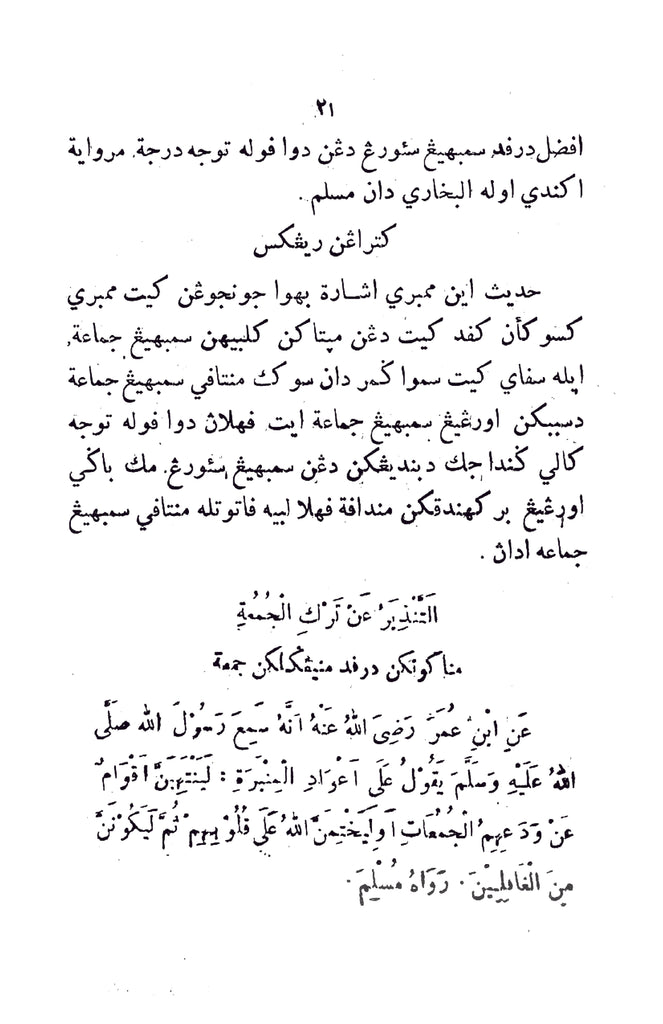 ٢١
افضل درفد سمبهيڠ سئورڠ دڠن دوا فوله توجه درجة. مرواية
اكندي اوله البخاري دان مسلم.
كتراڠن ريڠكس
حديث اين ممبري اشارة بهوا جونجوڠن كيت ممبري
كسوكأن كفد كيت دڠن ميتاكن كلبيهن سمبهيڠ جماعة,
اياه سفاي كيت سموا ݢمر دان سوك منتافي سمبهيڠ جماعة
دسببكن اورڠيڠ سمبهيڠ جماعة ايت فهلاڽ دوا فوله توجه
كالي ݢندا جك دبنديڠكن دڠن سمبهيڠ سئورڠ. مك باݢي
اورڠيڠ بركهندقكن مندافة فهلا لبيه فاتوتله منتافي سمبهيڠ
جماعه اداڽ.
اَلتَّنْذِيْرُ عَنْ تَرْكِ الْجُمُعَةِ
مناكوتكن درفد منيڠݢلكن جمعة
عَنِ ابْنِ عُمَرَ رَضِىَ اللهُ عَنْهُ اَنَّهُ سَمِعَ رَسُوْلَ اللهِ صَلَّى
اللهُ عَلَيْهِ وَسَلَّمَ يَقُوْلُ عَلَى اَعْوَادِ الْمِنْبَرَةِ : لَيَنْتَهِيَنَّ اَقْوَامٌ
عَنْ وَدَعِهِمُ الْجُمُعَاتِ اَوْلَيَخْتِمَنَّ اللهُ عَلَى قُلُوْبِهِمْ ثُمَّ لَيَكُوْنَنَّ
مِنَ الْغَافِلِيْنَ. رَوَاهُ مُسْلِمَ.